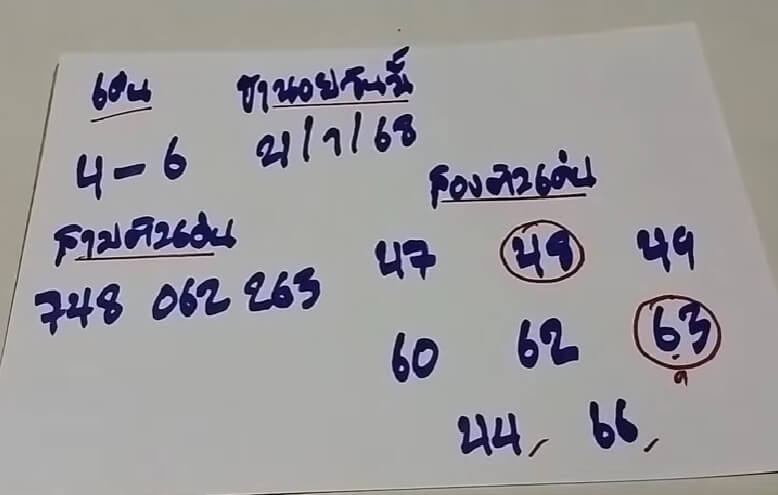 เด่น ฮานอยวันนี้
4-6 21/1/68
สองตัวเด่น
สามตัวเด่น
47 48 49
748 062 263
60 62 63
44, 66,